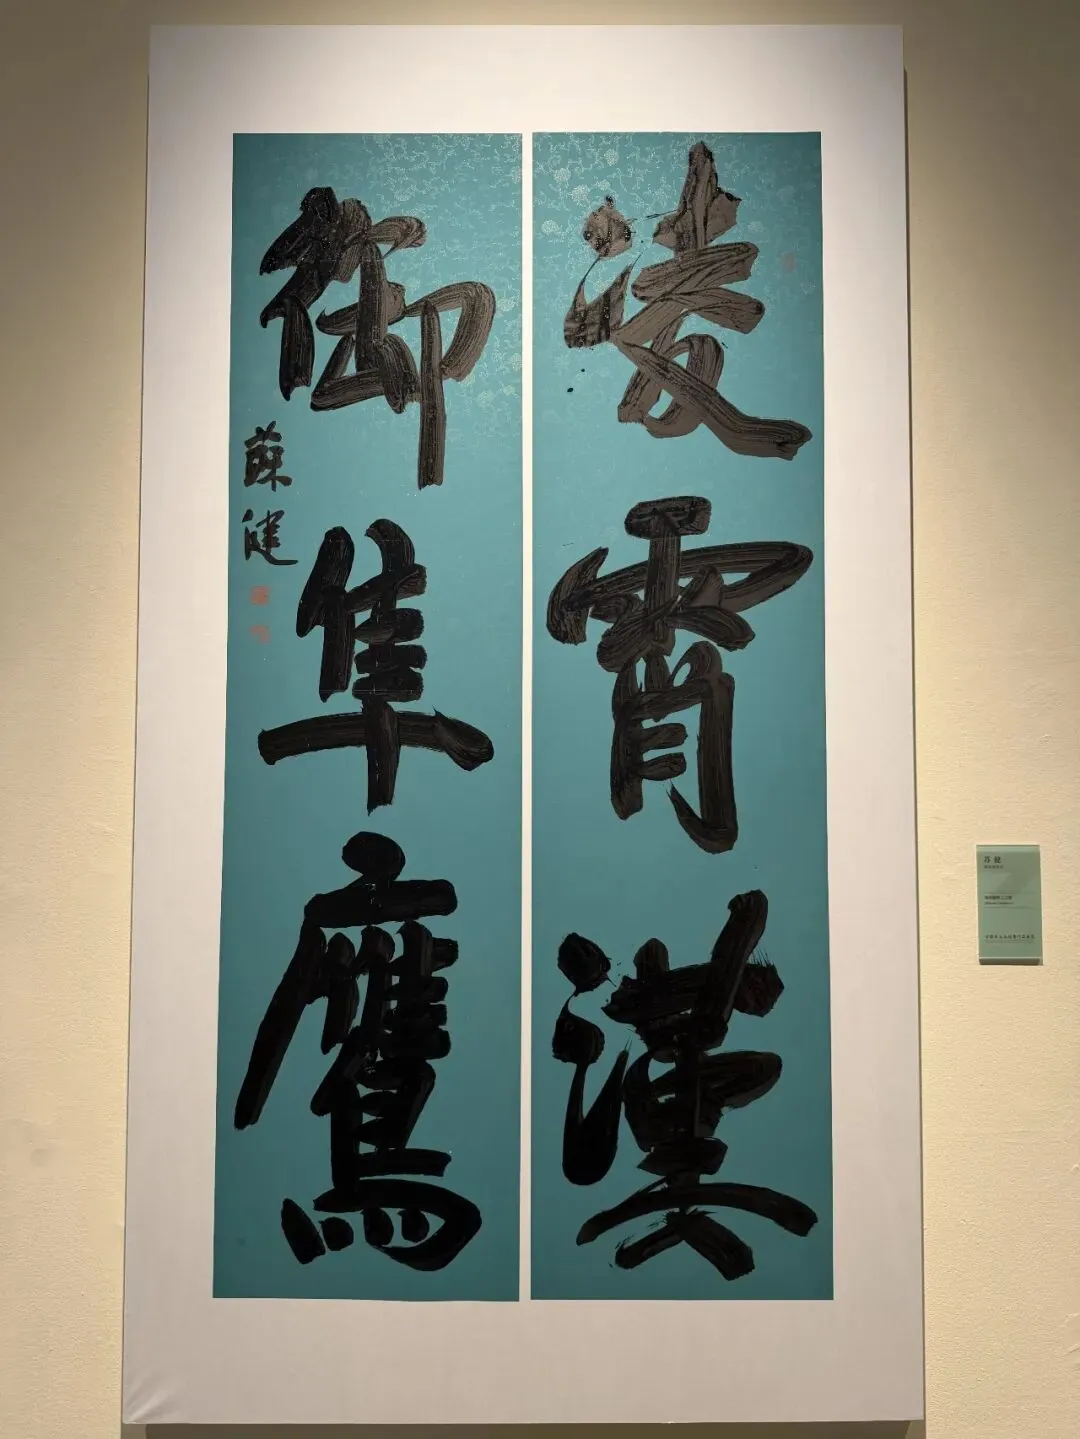 淩霄漢
御隼鷹
蘇健
苏 健